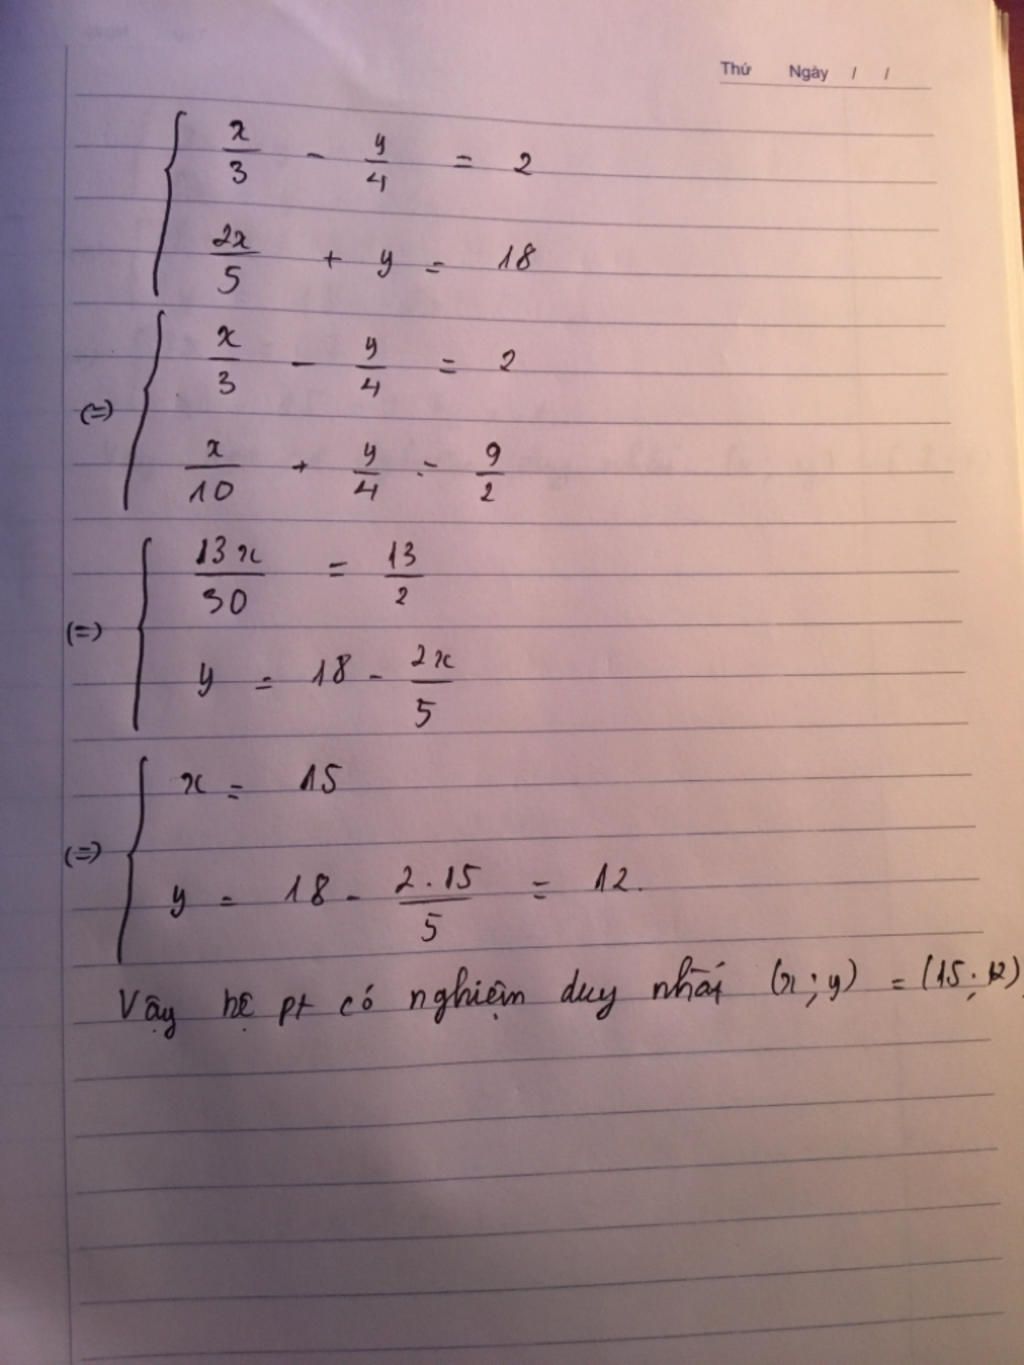 Thứ Ngày / /
x/3 - y/4 = 2
2x/5 + y = 18
(=) x/3 - y/4 = 2
x/10 + y/4 = 9/2
(=) 13x/30 = 13/2
y = 18 - 2x/5
(=) x = 15
y = 18 - 2.15/5 = 12.
Vậy hệ pt có nghiệm duy nhất (x; y) = (15; 12)